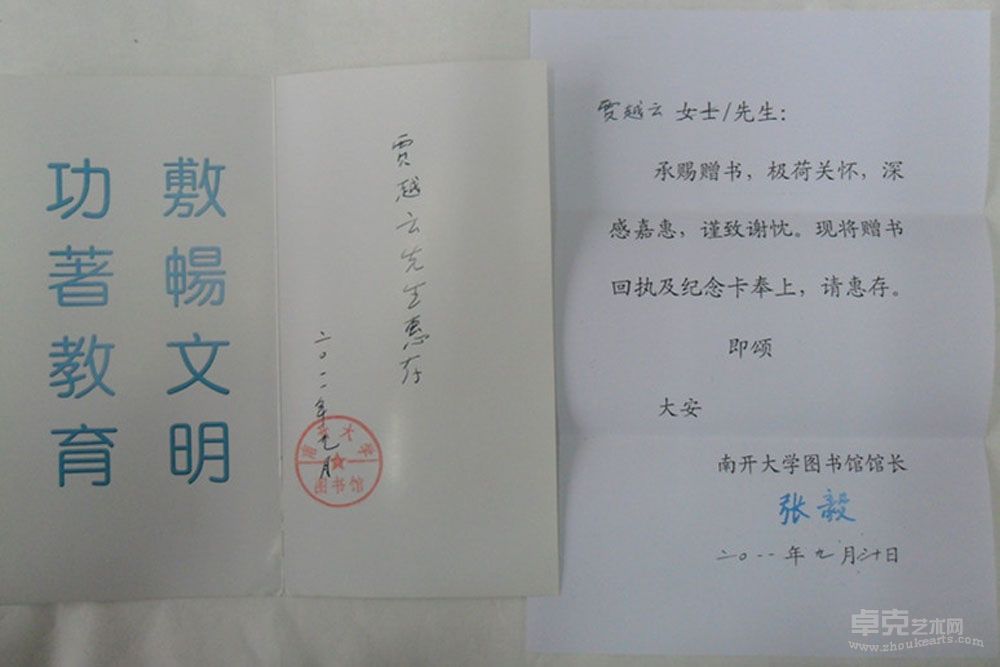 敷暢文明
功著教育
贾越云先生惠存
二〇一一年九月
南开大学
图书馆
贾越云 女士/先生：
承赐赠书，极荷关怀，深
感嘉惠，谨致谢忱。现将赠书
回执及纪念卡奉上，请惠存。
即颂
大安
南开大学图书馆馆长
张毅
二〇一一年九月二十日
卓克艺术网
www.zhoukearts.com